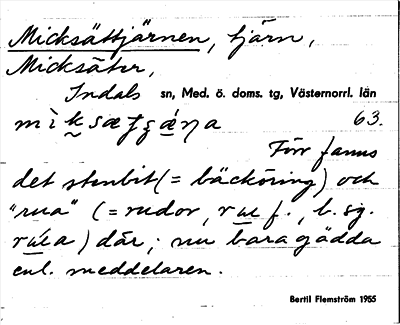 Micksättjärnen, tjärn,
Micksäter,
Indals sn, Med. ö. doms. tg, Västernorrl. län
63.
Förr fanns
det stenbit (= bäcköring) och
"rua" (= rudor, f., b. sg.
) där; nu bara gädda
enl. meddelaren.
Bertil Flemström 1955